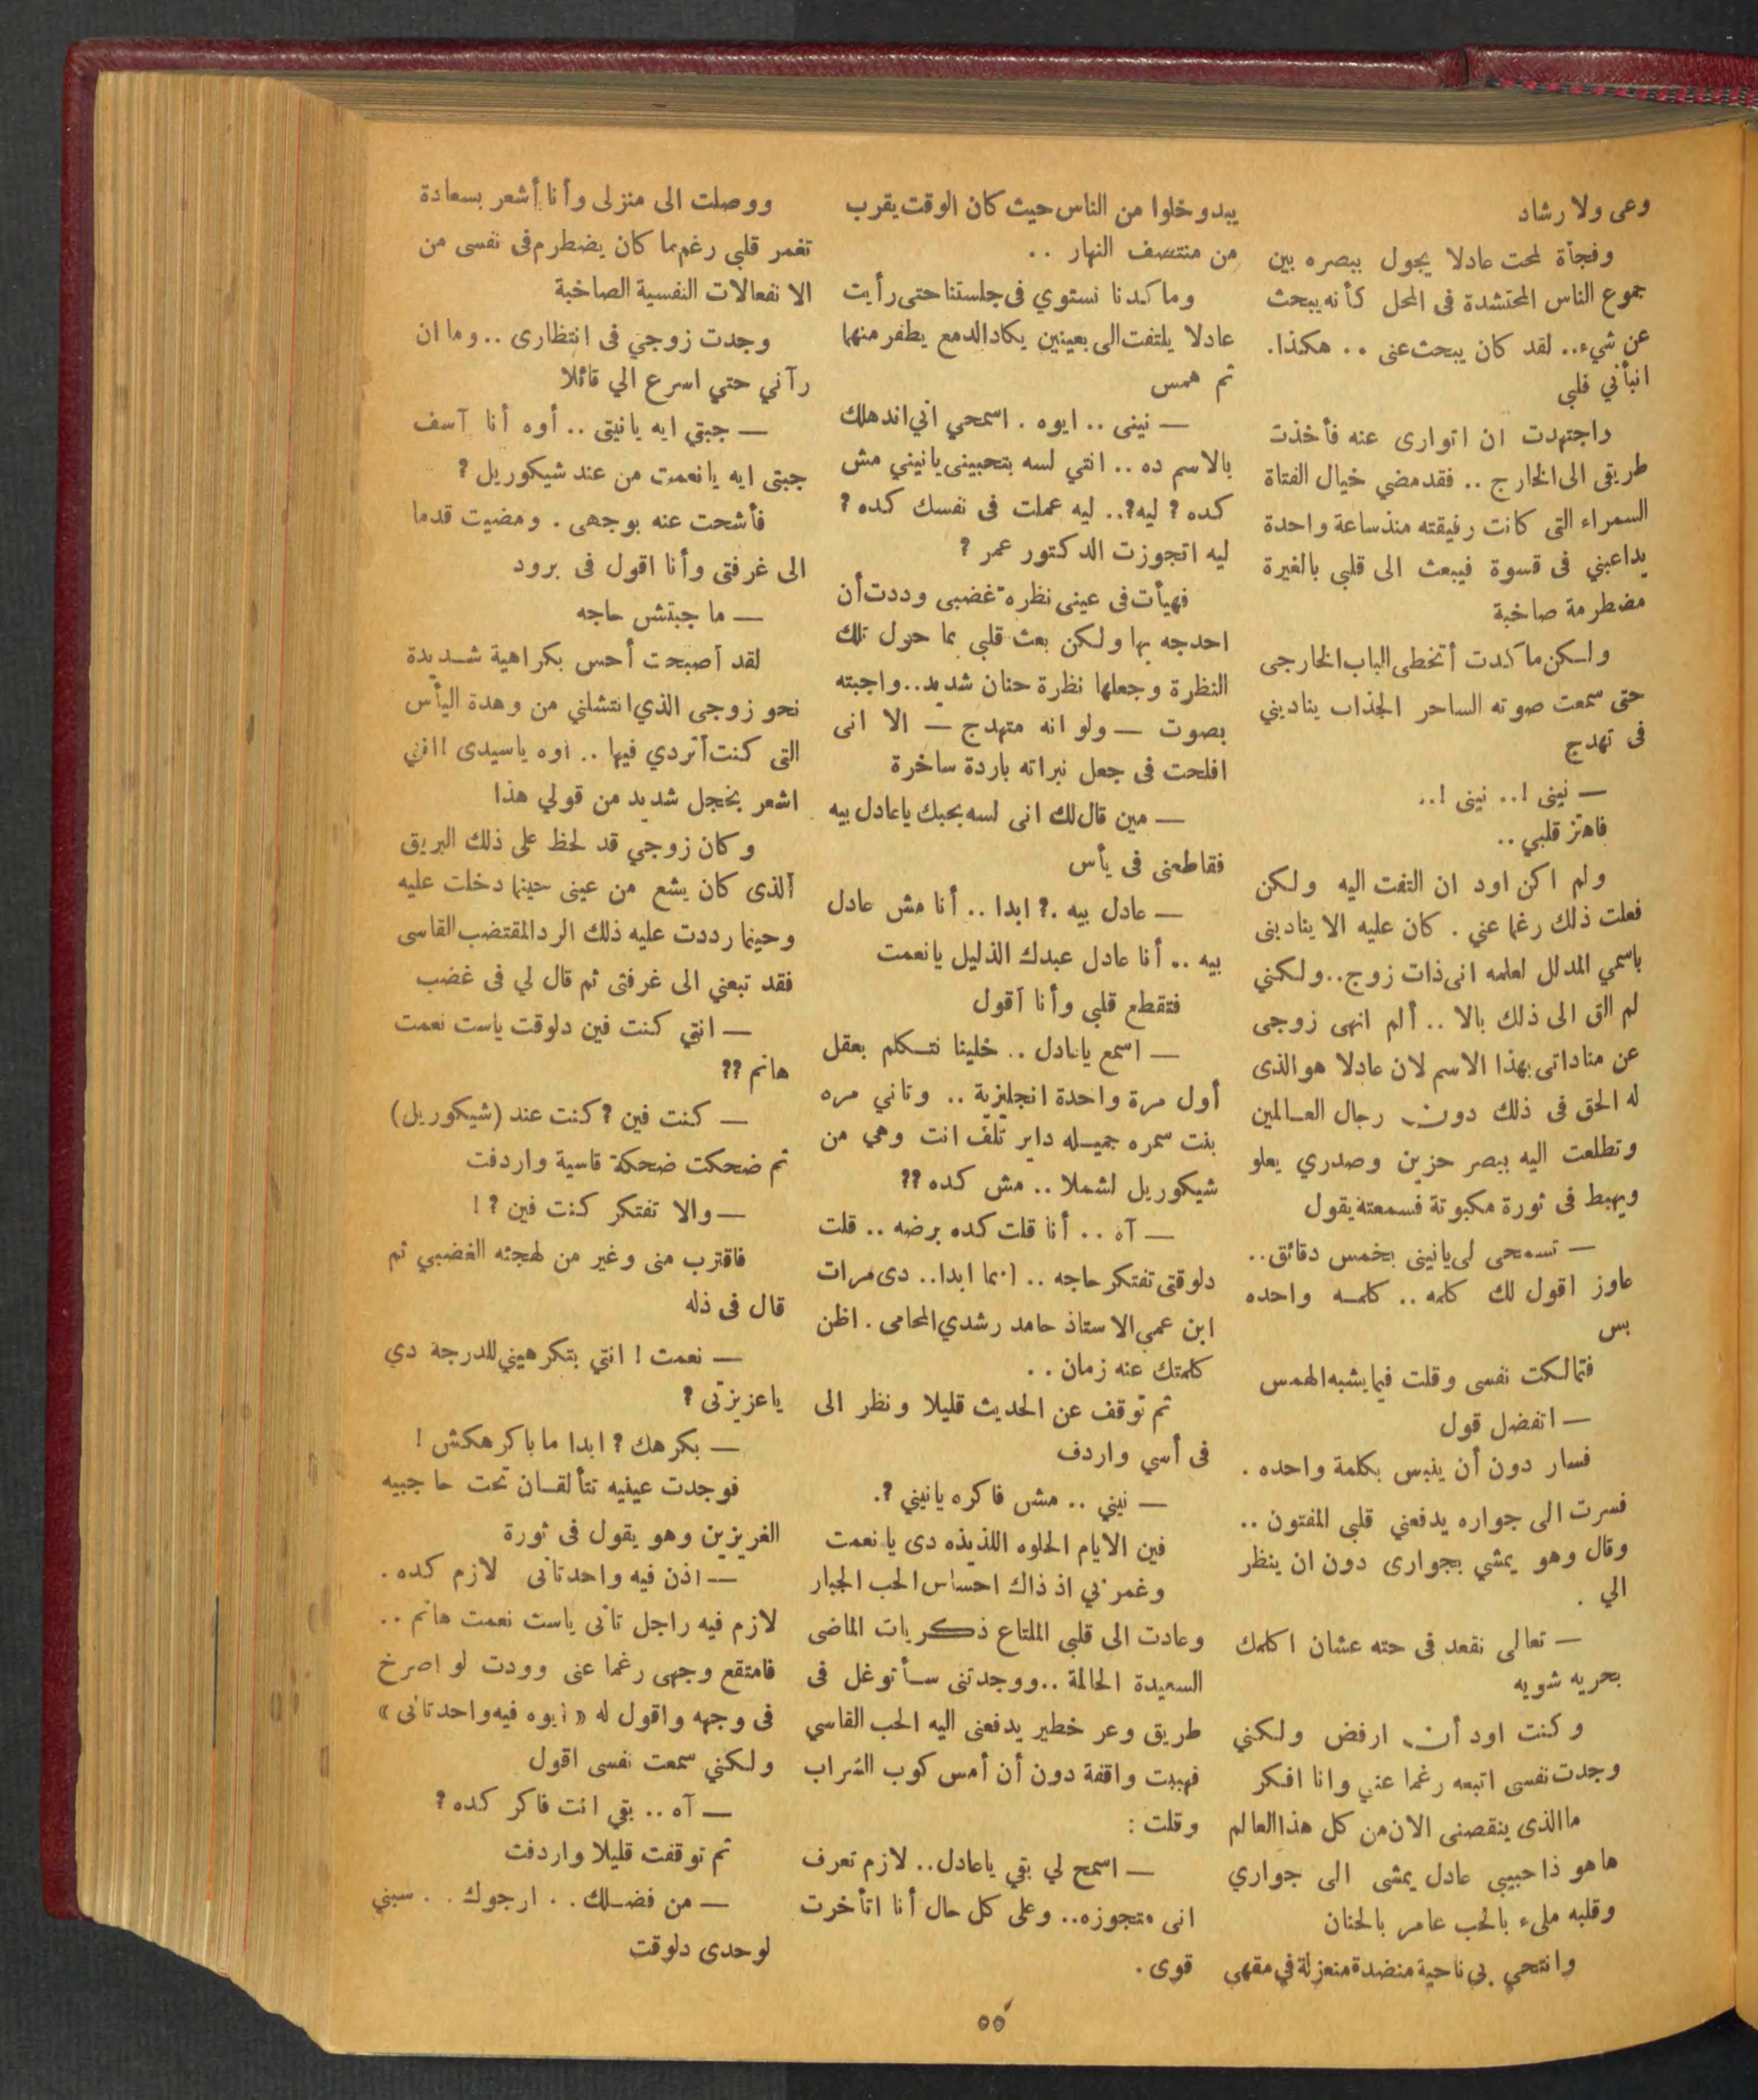 وعى ولا رشاد
وفجأة لمحت عادلا يجول ببصره بين
جموع الناس المحتشدة فى المحل كأنه يبحث
عن شيء.. لقد كان يبحث عنى .. هكذا.
انبأني قلبي
واجتهدت ان اتوارى عنه فأخذت
طريقى الى الخارج .. فقد مضي خيال الفتاة
السمراء التى كانت رفيقته منذ ساعة واحدة
يداعبني فى قسوة فيبعث الى قلبي بالغيرة
مضطرمة صاخبة
ولكن ما كدت أتخطى الباب الخارجى
حتى سمعت صوته الساحر الجذاب يناديني
فى تهدج
— نينى !.. نينى !..
فاهتز قلبي ..
ولم اكن اود ان التفت اليه ولكن
فعلت ذلك رغما عني . كان عليه الا ينادينى
باسمي المدلل لعلمه انى ذات زوج..ولكنني
لم الق الى ذلك بالا .. ألم انهى زوجى
عن مناداتى بهذا الاسم لان عادلا هو الذى
له الحق فى ذلك دون رجال العالمين
وتطلعت اليه ببصر حزين وصدري يعلو
ويهبط فى ثورة مكبوتة فسمعته يقول
— تسمحى لى يانينى بخمس دقائق..
عاوز اقول لك كلمه .. كلمه واحده
بس
فتمالكت نفسى وقلت فيما يشبه الهمس
— اتفضل قول
فسار دون أن ينبس بكلمة واحده .
فسرت الى جواره يدفعني قلبي المفتون ..
وقال وهو يمشي بجوارى دون ان ينظر
الي .
— تعالى نقعد فى حته عشان اكلمك
بحريه شويه
وكنت اود أن ارفض ولكني
وجدت نفسى اتبعه رغما عني وانا افكر
ما الذى ينقصنى الان من كل هذا العالم
ها هو ذا حبيبي عادل يمشى الى جواري
وقلبه ملىء بالحب عامر بالحنان
وانتحي بي ناحية منضدة منعزلة في مقهي
يبدو خلوا من الناس حيث كان الوقت يقرب
من منتصف النهار ..
وما كدنا نستوي فى جلستنا حتى رأيت
عادلا يلتفت الى بعينين يكاد الدمع يطفر منهما
ثم همس
— نينى .. ايوه . اسمحي اني اندهلك
بالاسم ده .. انتي لسه بتحبينى يانيني مش
كده ? ليه?.. ليه عملت فى نفسك كده ?
ليه اتجوزت الدكتور عمر ?
فهيأت فى عينى نظره غضبى وددت أن
احدجه بها ولكن بعث قلبي بما حول تلك
النظرة وجعلها نظرة حنان شديد..واجبته
بصوت — ولو انه متهدج — الا انى
افلحت فى جعل نبراته باردة ساخرة
— مين قال لك انى لسه بحبك ياعادل بيه
فقاطعنى فى يأس
— عادل بيه .? ابدا .. أنا مش عادل
بيه .. أنا عادل عبدك الذليل يانعمت
فتقطع قلبي وأنا أقول
— اسمع ياعادل .. خلينا نتكلم بعقل
أول مرة واحدة انجليزية .. وتاني مره
بنت سمره جميله داير تلف انت وهي من
شيكوريل لشملا .. مش كده ??
— آه .. أنا قلت كده برضه .. قلت
دلوقتى تفتكر حاجه .. انما ابدا.. دى مرات
ابن عمى الاستاذ حامد رشدي المحامى . اظن
كلمتك عنه زمان ..
ثم توقف عن الحديث قليلا ونظر الى
فى أسي واردف
— نيني .. مش فاكره يانيني ?.
فين الايام الحلوه اللذيذه دى يا نعمت
وغمرني اذ ذاك احساس الحب الجبار
وعادت الى قلبي الملتاع ذكريات الماضى
السعيدة الحالمة ..ووجدتنى سأتوغل فى
طريق وعر خطير يدفعنى اليه الحب القاسي
فهببت واقفة دون أن أمس كوب الشراب
وقلت :
— اسمح لي بقي ياعادل.. لازم تعرف
انى متجوزه.. وعلى كل حال أنا اتأخرت
قوى .
ووصلت الى منزلى وأنا أشعر بسعادة
تغمر قلبي رغم ما كان يضطرم فى نفسى من
الانفعالات النفسية الصاخبة
وجدت زوجي فى انتظارى .. وما ان
رآني حتي اسرع الي قائلا
— جبتي ايه يانيتى .. أوه أنا آسف
جبتى ايه يا نعمت من عند شيكوريل ?
فأشحت عنه بوجهى . ومضيت قدما
الى غرفتى وأنا اقول فى برود
— ما جبتش حاجه
لقد أصبحت أحس بكراهية شديدة
نحو زوجى الذي انتشلني من وهدة اليأس
التى كنت أتردي فيها .. أوه ياسيدى !انني
اشعر بخجل شديد من قولي هذا
وكان زوجي قد لحظ على ذلك البريق
الذى كان يشع من عينى حينما دخلت عليه
وحينما رددت عليه ذلك الرد المقتضب القاسى
فقد تبعني الى غرفتى ثم قال لي فى غضب
— انتي كنت فين دلوقت ياست نعمت
هانم ??
— كنت فين ? كنت عند (شيكوريل)
ثم ضحكت ضحكة قاسية واردفت
— والا تفتكر كنت فين ? !
فاقترب منى وغير من لهجته الغضبي ثم
قال فى ذله
— نعمت ! انتي بتكرهيني للدرجة دي
يا عزيزتى ?
— بكرهك ? ابدا ما باكرهكش !
فوجدت عينيه تتألقان تحت حاجبيه
الغزيزين وهو يقول فى ثورة
— اذن فيه واحد تانى لازم كده .
لازم فيه راجل تانى ياست نعمت هانم ..
فامتقع وجهى رغما عنى وودت لو اصرخ
فى وجهه واقول له « أيوه فيه واحد تانى »
ولكني سمعت نفسى اقول
— آه .. بقي انت فاكر كده ?
ثم توقفت قليلا واردفت
— من فضلك . . ارجوك . . سبني
لوحدى دلوقت
٥٥